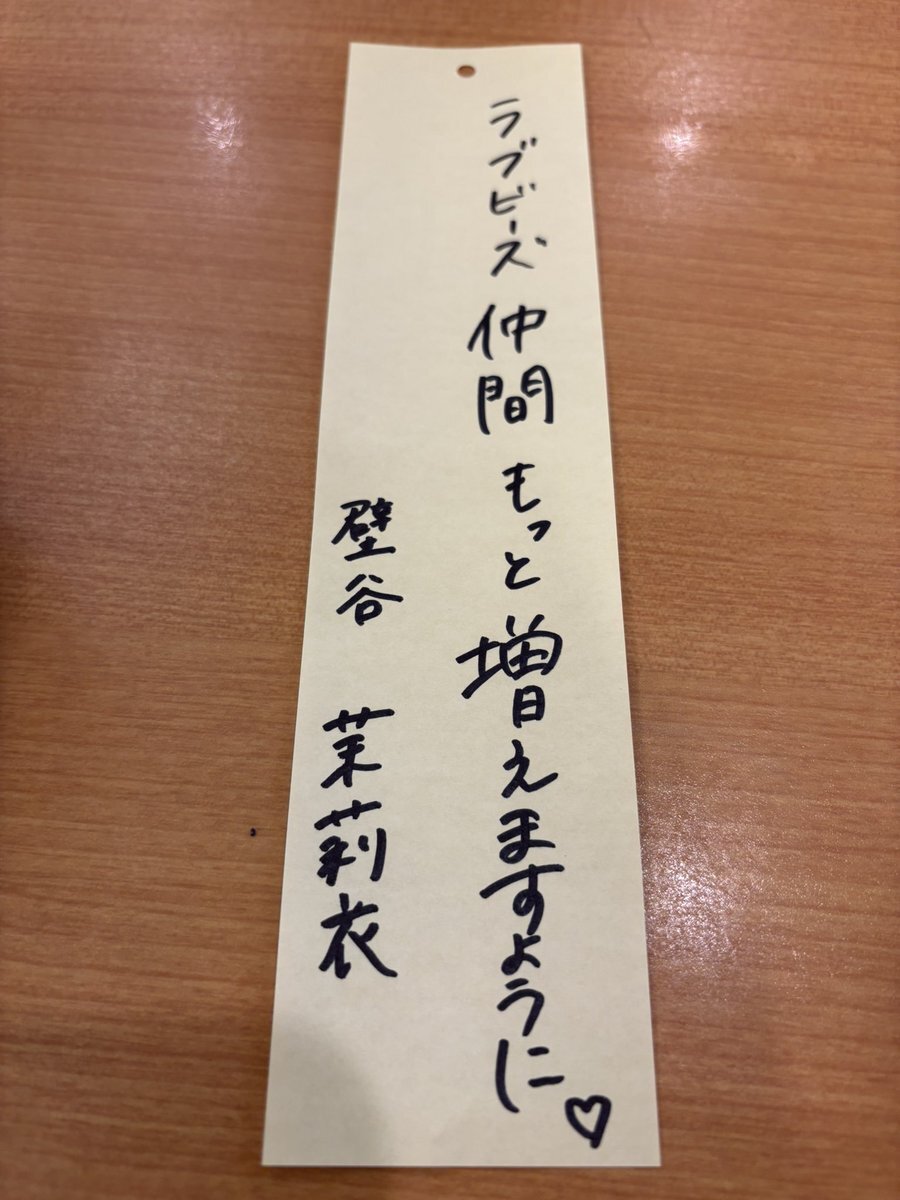 ラブビーズ 仲間 もっと 増えますように♡
壁谷 茉莉衣